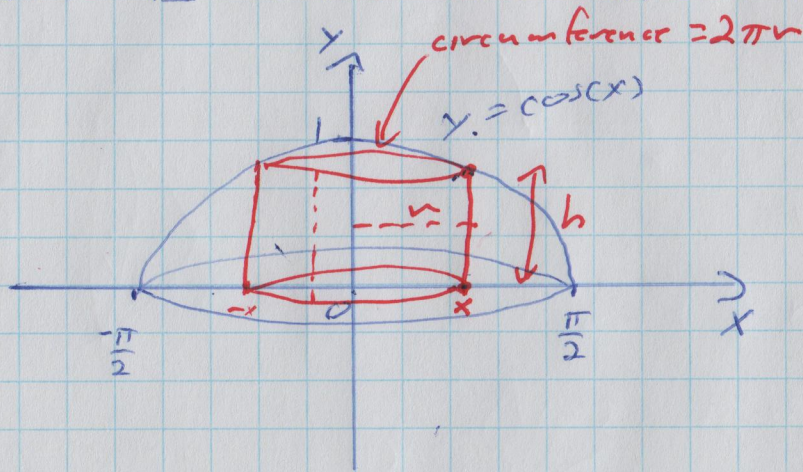 y
circumference = 2πr
y = cos(x)
1
h
r
-x
0
x
-π/2
π/2
x